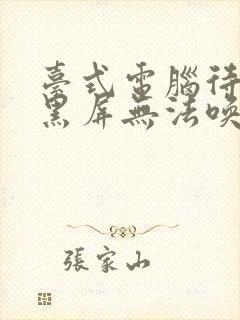 臺式電腦待
黑屏無法喚
張家山